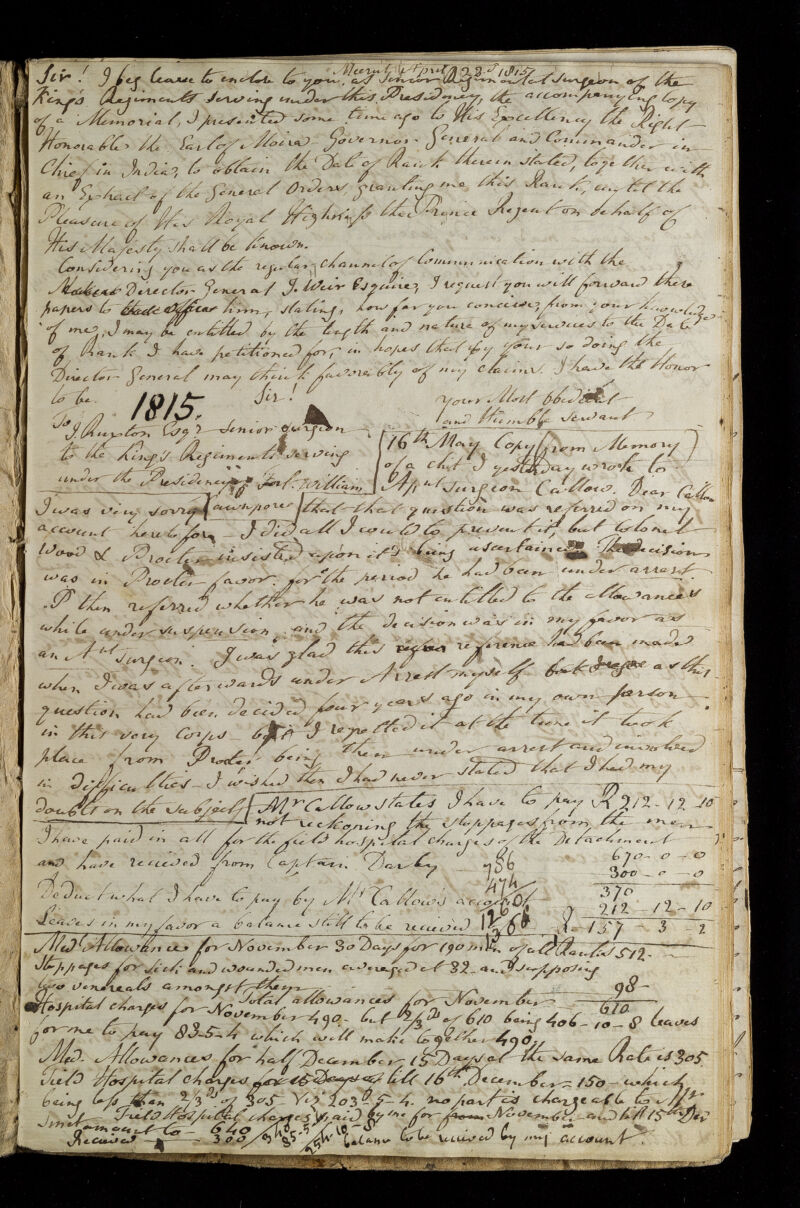 Meerut April 22d 1815
Sir! I beg leave to enclose to you, as Senior Regimental Surgeon of the
King's Regiments serving under this Presidency, the accompanying Copy
of a Memorial, I presented some time ago to His Excellency the Right
Honorable the Earl of Moira Governor General and Commander in
Chief in India, to obtain the Date of Rank therein stated, together with
an Extract of the General Orders, granting me this Rank, until the
Pleasure of His Royal Highness the Prince Regent on behalf of
His Majesty shall be known.
Considering you as the regular channel of Communication with the
Director General J. Weir Esquire, I request you will forward these
papers to him, stating, how far you conceive, from your knowledge
of me, I may be entitled by the length and nature of my services to the Date
of Rank I have petitioned for, in hopes that by your so doing the
Director General may think favorably of my claims. I have the Honor
to be. Sir!
1815.
your Most obedient
and Humble Servant
To
J. Esqr Senior Surgeon
to the King's Regiments serving
under the Presidency of Fort William
16th May Copy from Memory
of a chit I yesterday wrote to
Asnt Surgeon Callow. Dear Callow
I was very sorry Cawnpore that that question was referred on my
account heretofore - I did all I could to prevent it, but Colonel
Wood & Procter insisted upon its being ascertained. The decision
was in Procter favor. for the period he had been under arrest
I then referred whether he was not entitled to the allowances
while under suspension, and the decision was in my favor as
an Ast Surgeon. I was glad this reference had been made
when I was afterwards under Arrest myself as this
question had been decided four years ago in my own person
in this very Corps - but I regretted it at the time it took
place from Procter being then under arrest and involved
in difficulties - I wished then I had never stated that I had my
doubts on the subject Mr Callow states I have to pay R 212-12-10
not reckoning the stoppages from the men
I have paid in all for the field hospital charges of the Detachment 670-0-0
and have recieved from Captain Darby 300-0-0
786
474
1260
370
Deduct what I have to pay by Mr Callow's account 212-12-10
Leaves in my favor a balance still to be recieved R 157-3-2
Med. Allowance for November 30 Days for 190 men of all Ranks 512-
Stoppages for sick and wounded men averaged at 32 and supposing
two venereals amongst them 98-
Total allowances for November 610
Hospital charges for November 490 - but 2/3ds of 610 being 406-10-8 leaves
for me to pay 83-5-4 which will make together 490.
Med. Allowances for half December 15 Days at the same Rate is 305
Field Hospital charges till 16th December - 150 - which
being less than 2/3ds of 305 - Viz 203-5-4. no part is chargeable to Mr
Field Hospital charges paid by me for November and till 15th Decr
amount to 640
Recieved 300
340
85-5-4
254-10-8
balance to be recieved by my account.